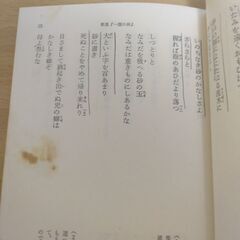 いのちなき砂のかなしさよ
さらさらと
握れば指のあひだより落つ
しつとりと
なみだを吸へる砂の玉
なみだは重きものにしあるかな
大といふ字を百あまり
砂に書き
死ぬことをやめて帰り来れり
目さまして猶起き出でぬ児の癖は
かなしき癖ぞ
母よ咎むな